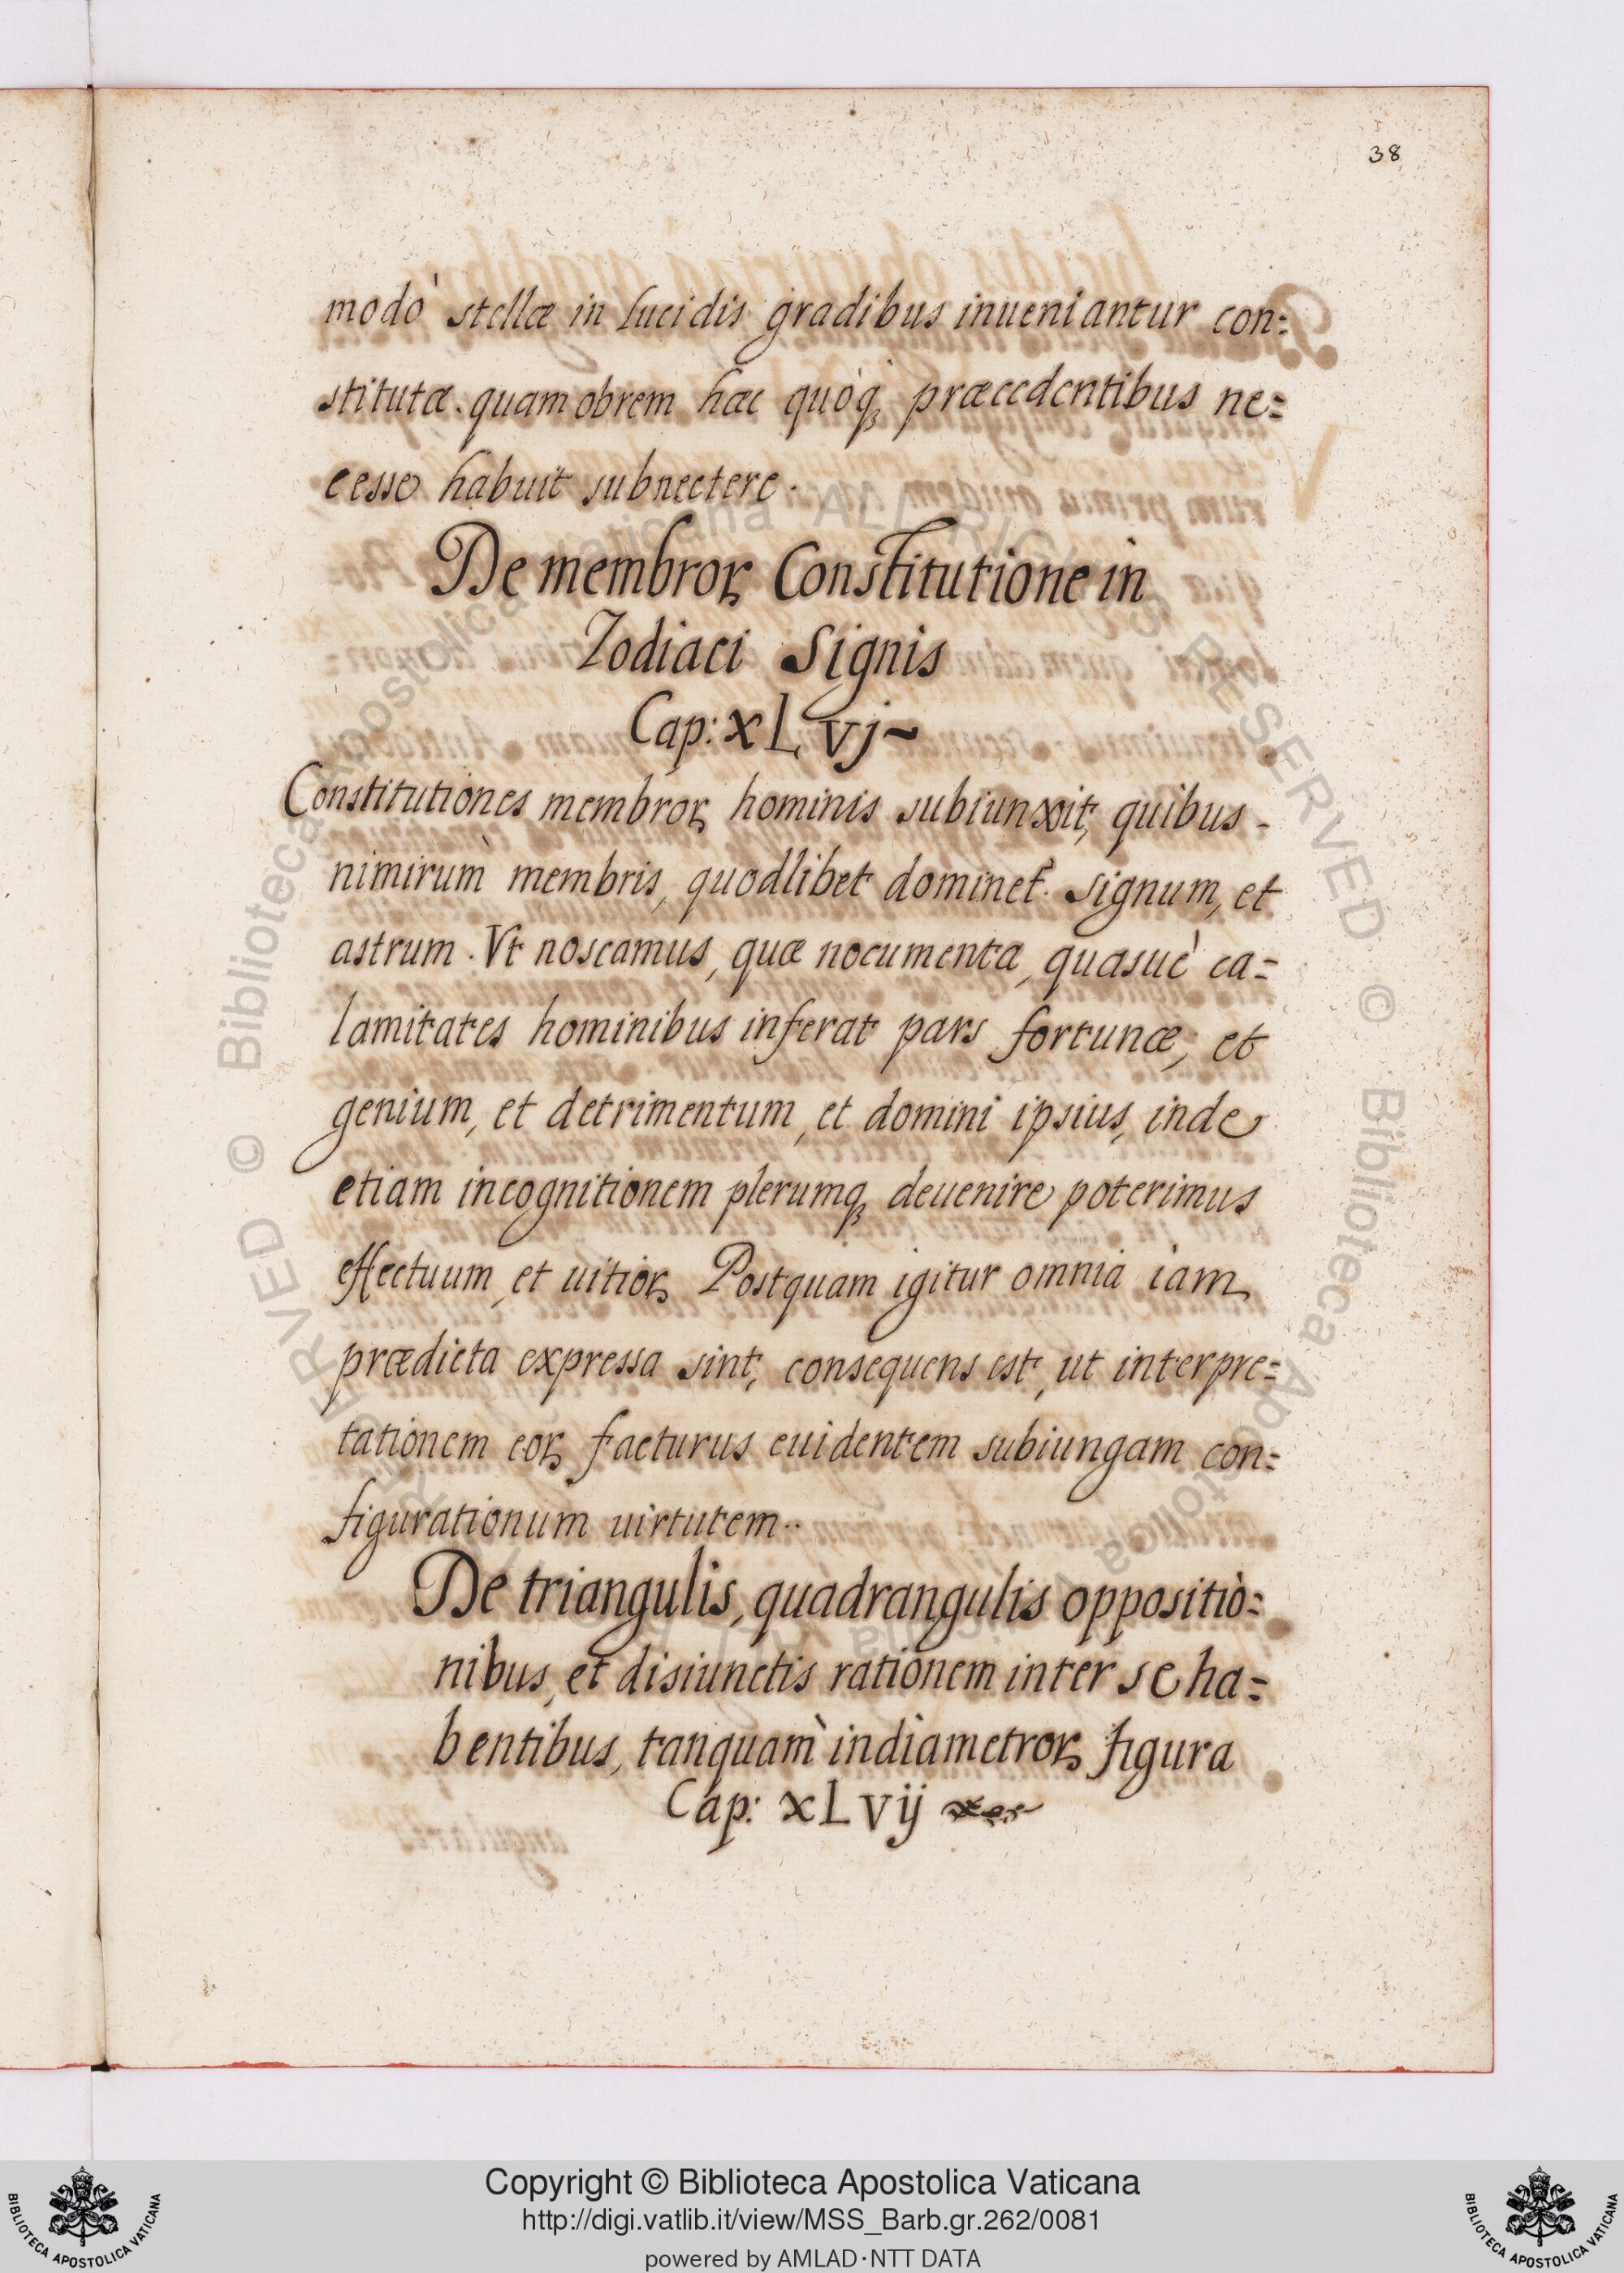 38
modò stellæ in lucidis gradibus inueniantur con=
stitutæ. quam obrem hæc quòq; præcedentibus ne=
cesse habuit subnectere.
De membroꝝ Constitutione in
Zodiaci Signis
Cap: xLvj~
Constitutiones membroꝝ hominis subiunxit, quibus -
nimirum membris, quodlibet dominet̃. Signum, et
astrum. Vt noscamus, quæ nocumenta, quasuè ca=
lamitates hominibus inferat pars fortunæ, et
genium, et detrimentum, et domini ipsius, inde
etiam incognitionem plerumq; deuenire poterimus
effectuum, et uitioꝝ Postquam igitur omnia iam
prædicta expressa sint, consequens est, ut interpre=
tationem eoꝝ facturus euidentem subiungam con=
figurationum uirtutem..
De triangulis, quadrangulis oppositio=
nibus, et disiunctis rationem inter se ha=
bentibus, tanquam indiametroꝝ figura
Cap: xLvij
© Biblioteca Apostolica Vaticana ALL RIGHTS RESERVED © Biblioteca Apostolica Vaticana ALL RIGHTS RESERVED
Copyright © Biblioteca Apostolica Vaticana
http://digi.vatlib.it/view/MSS_Barb.gr.262/0081
powered by AMLAD·NTT DATA
BIBLIOTECA APOSTOLICA VATICANA
BIBLIOTECA APOSTOLICA VATICANA